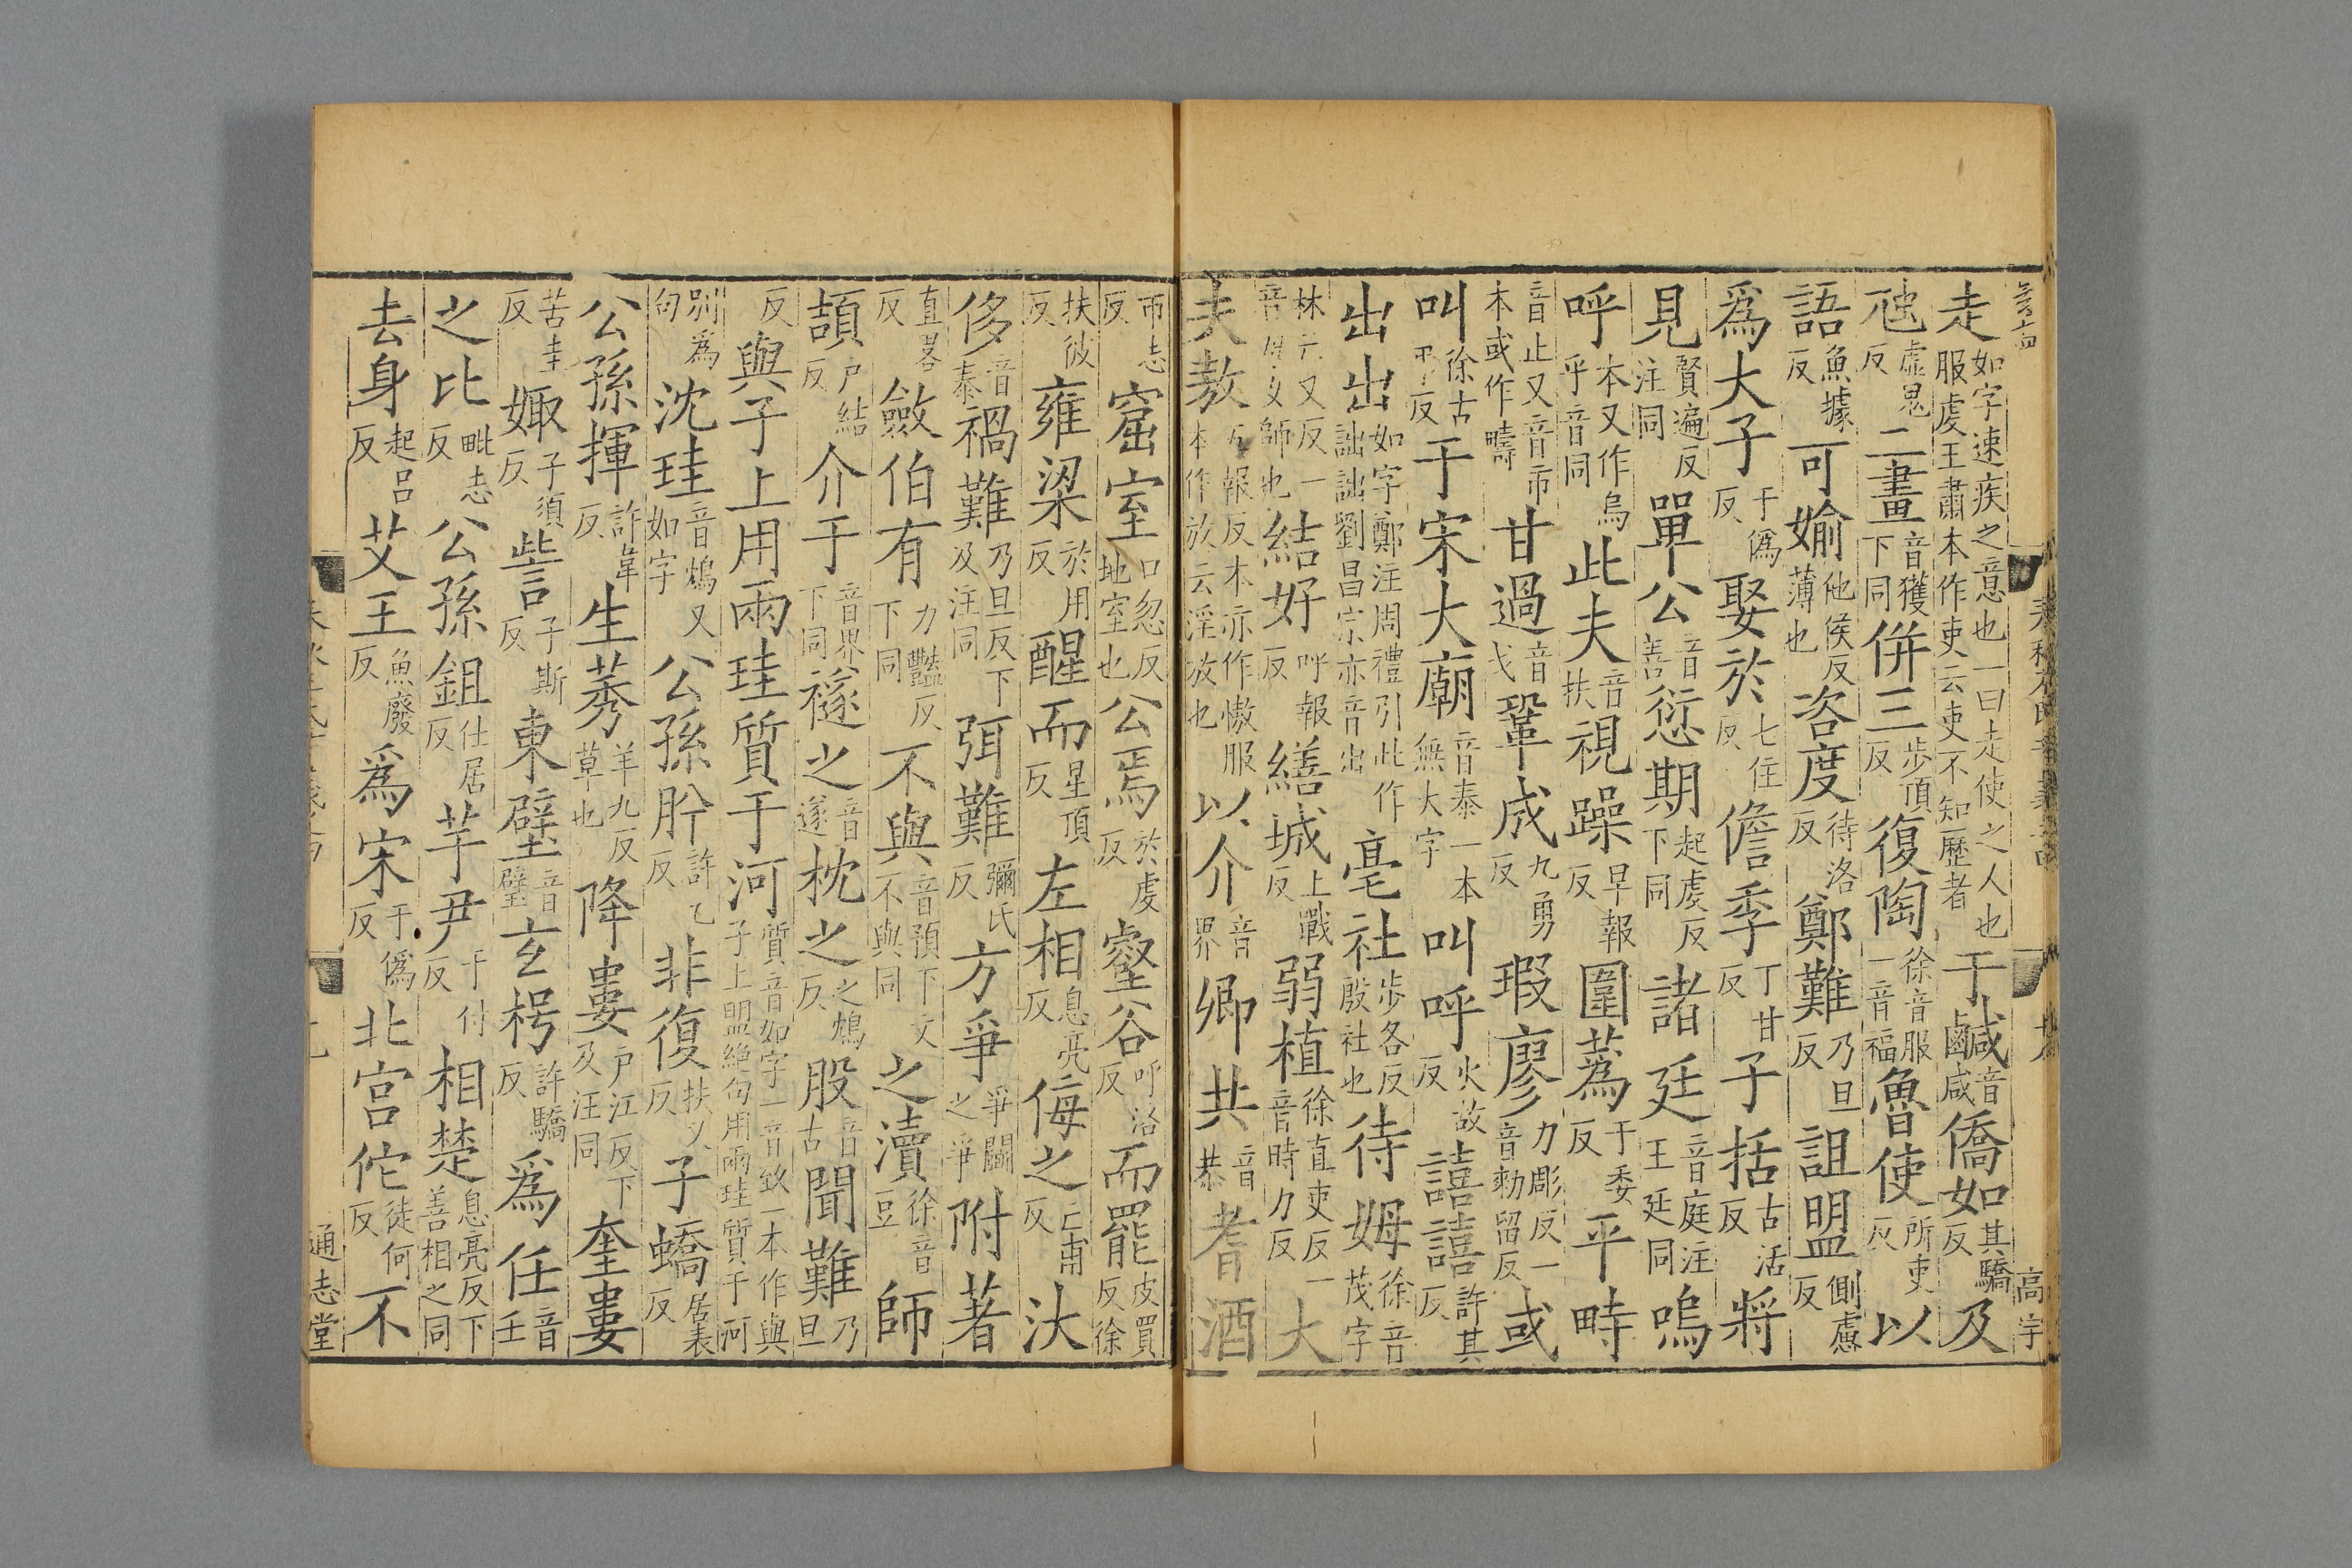 走如字速疾之意也一曰走使之人也服虔王肅本作吏云吏不知歷者于鹹音咸僑如其驕反及
虺虛鬼反二畫音獲下同併三步頂反復陶徐音服一音福魯使所吏反以
語魚據反可媮他侯反薄也咨度待洛反鄭難乃旦反詛盟側慮反
爲大子于僞反娶於七住反儋季丁甘反子括古活反將
見賢遍反注同單公音善愆期起虔反下同諸廷音庭注王廷同嗚
呼本又作烏乎音同此夫音扶視躁早報反圍蒍于委反平畤
音止又音市本或作疇甘過音戈鞏成九勇反瑕廖力彫反一音勑留反或
叫徐古弔反于宋大廟音泰一本無大字叫呼火故反譆譆許其反
出出如字鄭注周禮引此作詘詘劉昌宗亦音出亳社步各反殷社也待姆徐音茂字
林亡又反一音母女師也結好呼報反繕城上戰反弱植徐直吏反一音時力反大
夫敖五報反本亦作傲服本作放云淫放也以介音界卿共音恭耆酒
市志反窟室口忽反地室也公焉於虔反壑谷呼洛反而罷皮買反徐
扶彼反雍梁於用反醒而星頂反左相息亮反侮之亡甫反汏
侈音泰禍難乃旦反下及注同弭難彌氏反方爭爭鬭之爭附著
直畧反斂伯有力豔反下同不與音預下文不與同之瀆徐音豆師
頡戶結反介于音界下同襚之音遂枕之之鴆反股音古聞難乃旦
反與子上用兩珪質于河質音如字一音致一本作與子上盟絶句用兩珪質于河
別爲句沈珪音鴆又如字公孫肸許乙反非復扶又反子蟜居表反
公孫揮許韋反生莠羊九反草也降婁戶江反下及注同奎婁
苦圭反娵子須反訾子斯反東壁音壁玄枵許驕反爲任音壬
之比毗志反公孫鉏仕居反芋尹于付反相楚息亮反下善相之同
去身起呂反艾王魚廢反爲宋于僞反北宮佗徒何反不
通志堂